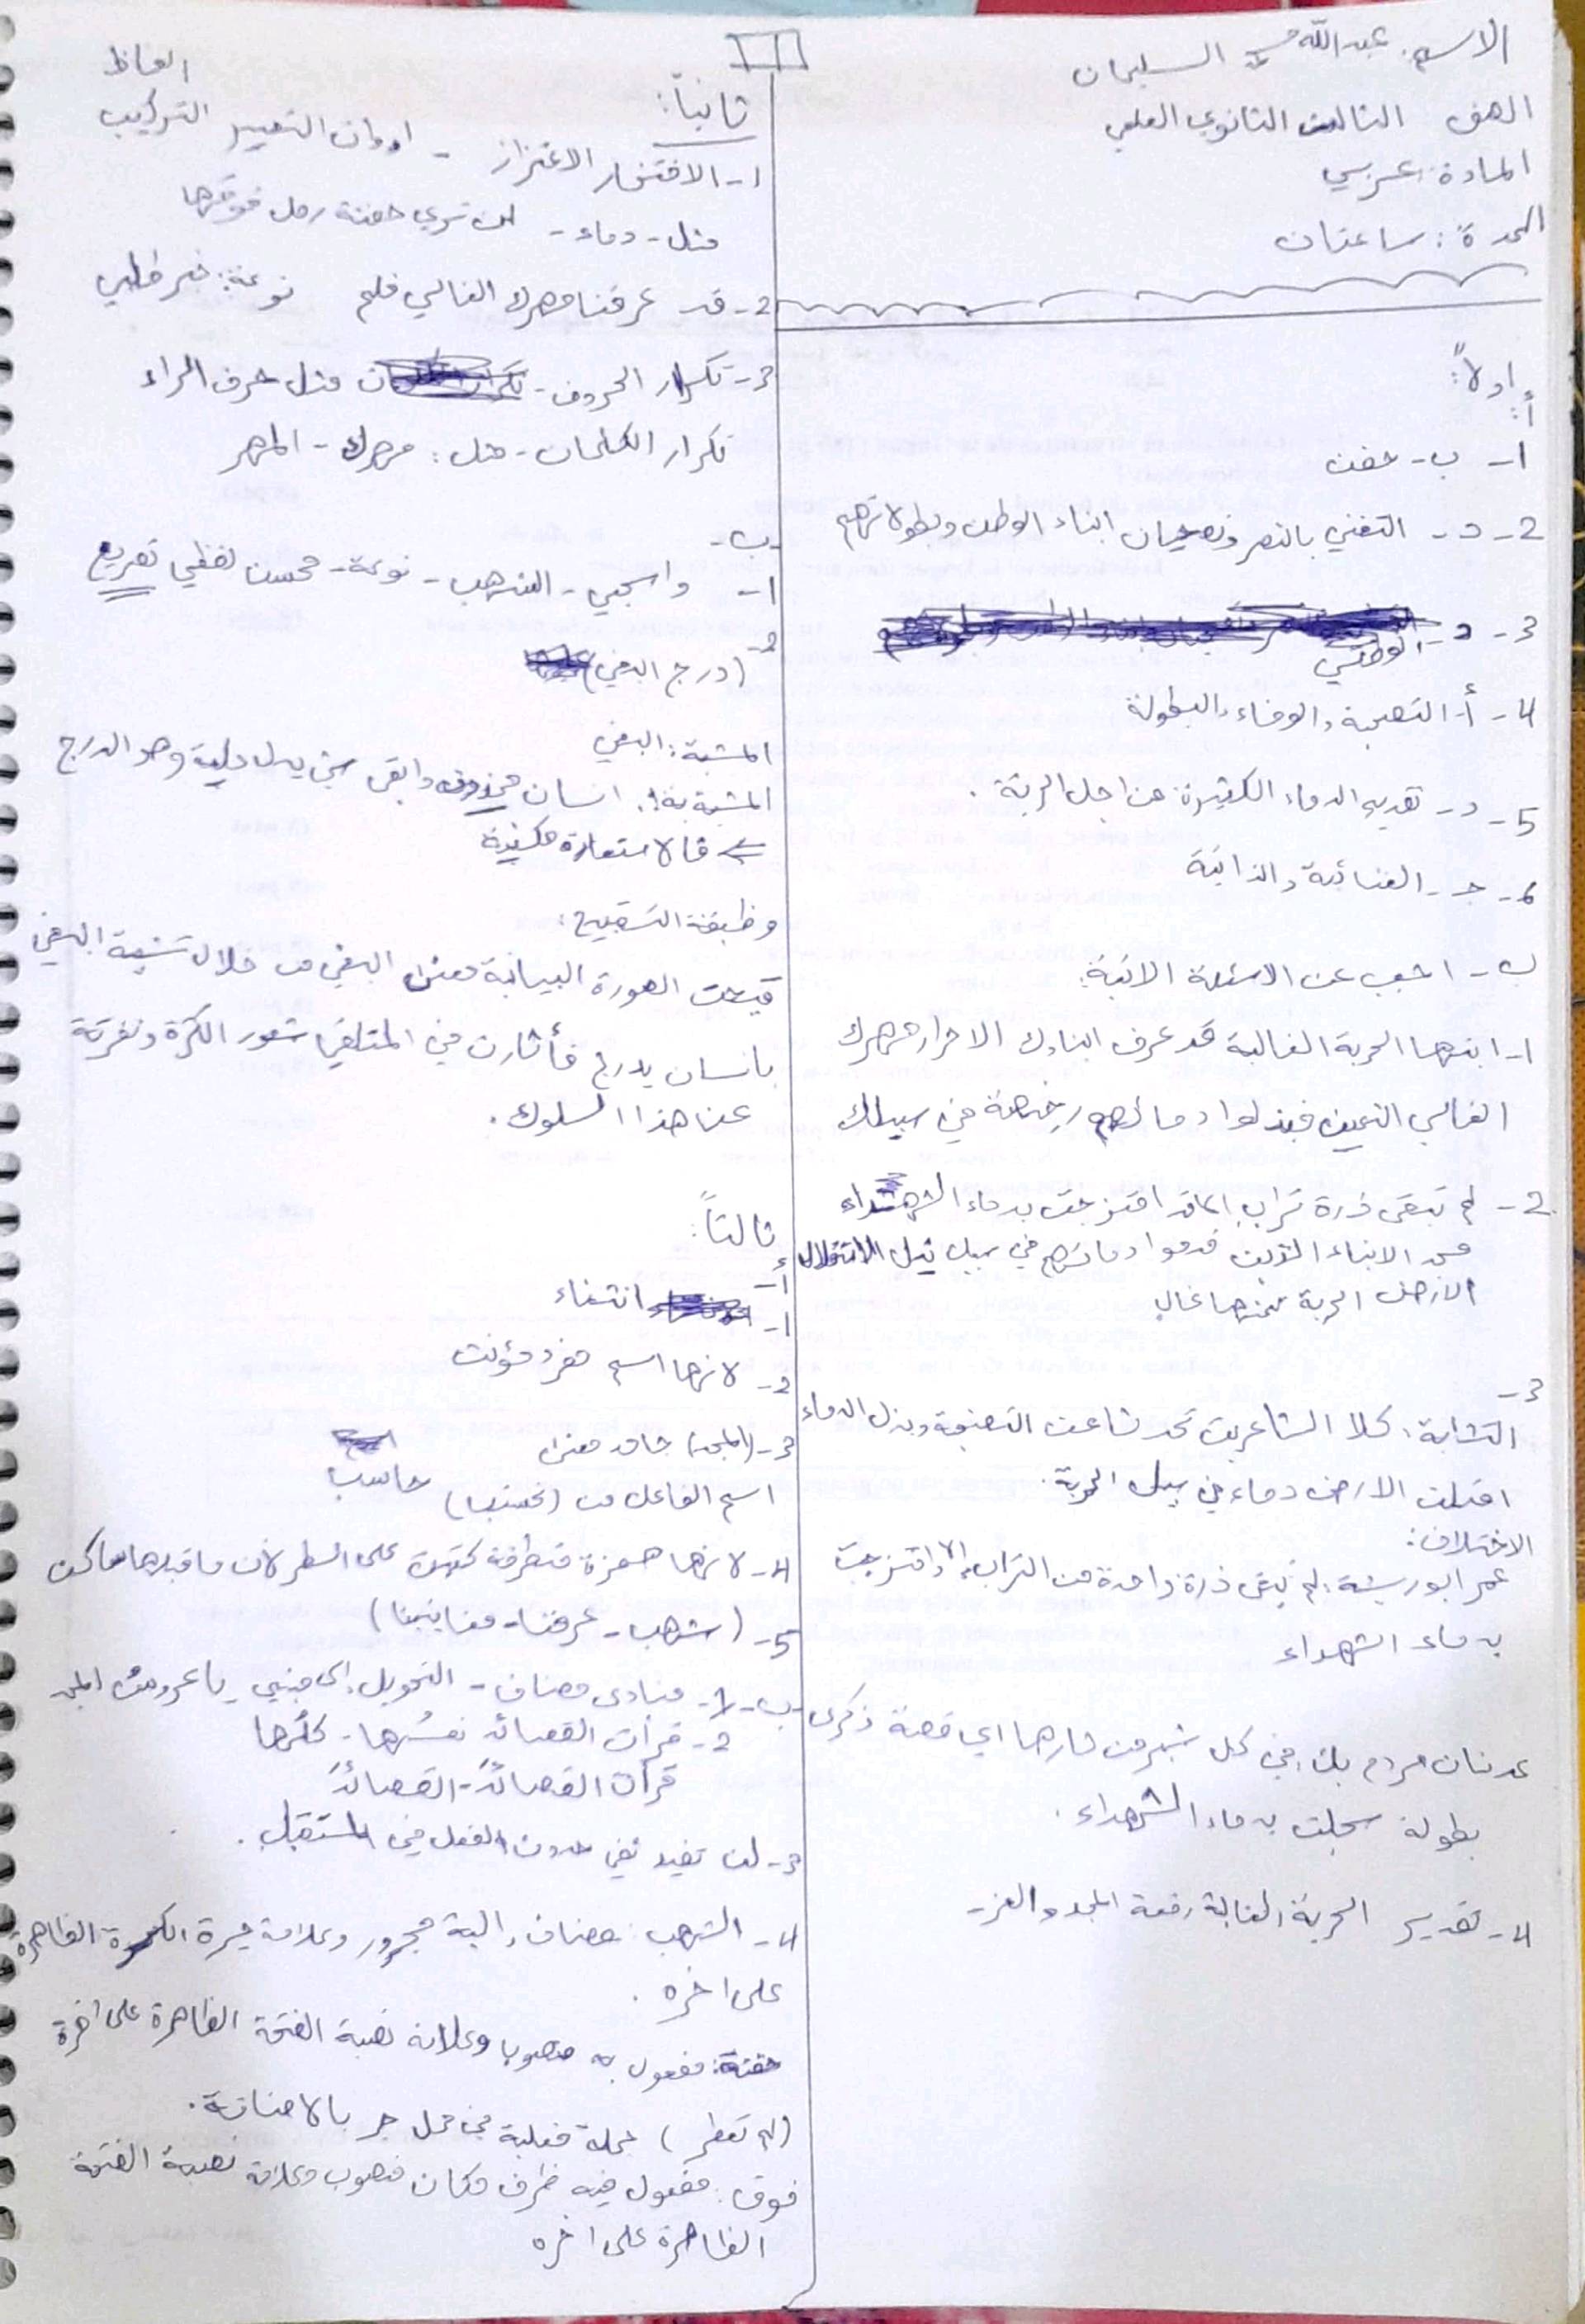 الاسم: عبدالله السليمان
الصف الثالث الثانوي العلمي
المادة: عربي
المدة: ساعتان
اولاً:
أ:
1- ب- حفن
2- د- التغني بالنصر وتضحيات ابناء الوطن وبطولاتهم
3- د- الوطني
4- أ- التضحية والوفاء والبطولة
5- د- تقديم الدماء الكثيرة من اجل الحرية.
6- ج- الغنائية والذاتية
ب- اجب عن الاسئلة الاتية:
1- ايتها الحرية الغالية قد عرف ابناؤك الاحرار مهرك
الغالي الثمين فبذلوا دمائهم رخيصة في سبيلك
2- لم تبقى ذرة تراب الا قد امتزجت بدماء الشهداء
من الابناء الذين قدموا دمائهم في سبيل نيل الاستقلال
الارض الحرية ثمنها غالي
3-
التشابه: كلا الشاعرين تحدثا عن التضحية وبذل الدماء
امتلت الارض دماء في سبيل الحرية.
الاختلاف:
عمر ابو ريشة: لم تبقى ذرة واحدة من التراب الا وامتزجت
بدماء الشهداء
عدنان مردم بك: في كل شبر من ثارها اي قصة ذكرى
بطولة سجلت بدماء الشهداء.
4- تقدير الحرية الغالية رفعة المجد والعز.
ثانياً:
1- الافتخار الاعتزاز - ادوات التعبير التركيب الفاظ
مثل - دماء - لن تري حفنة رمل فوقها
2- قد عرفنا مهرك الغالي فلم نوعه: خبر طلبي
3- تكرار الحروف - مثل حرف الراء
تكرار الكلمات - مثل: مهرك - المهر
ب-
1- واسحبي - الشهب - نوعه - محسن لفظي تصريع
2- (درج البغي)
المشبه: البغي
المشبه به: انسان محذوف وابقى شيئ يدل عليه وهو الدرج
<= فالاستعارة مكنية
وظيفة التقبيح:
قبحت الصورة البيانية معنى البغي من خلال تشبيه البغي
بانسان يدرج فأثارت في المتلقي شعور الكره ونفرته
عن هذا السلوك.
ثالثاً:
أ-
1- انتشاء
2- لانها اسم مفرد مؤنث
3- (المجد) جامد معنى
اسم الفاعل من (تحسب) حاسب
4- لانها همزة متطرفة كتبت على السطر لان ما قبلها ساكن
5- (شهب - عرفنا - مغانينا)
ب- 1- منادى مضاف - التحويل الى مبني يا عروس المجد
2- قرأت القصائد نفسها - كلها
قرأت القصائدَ - القصائدَ
3- لن تفيد نفي حدوث الفعل في المستقبل.
4- الشهب: مضاف اليه مجرور وعلامة جره الكسرة الظاهرة
على اخره.
حفنة: مفعول به منصوب وعلامة نصبه الفتحة الظاهرة على اخره
(لم تعطر) جملة فعلية في محل جر بالاضافة.
فوق: مفعول فيه ظرف مكان منصوب وعلامة نصبه الفتحة
الظاهرة على اخره